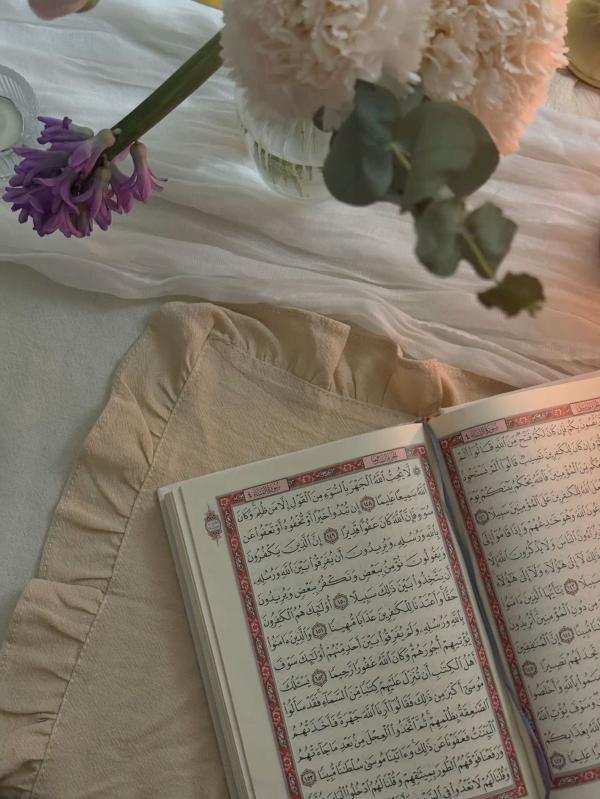 سُورَةُ النِّسَاءِ ٤
يَتَرَبَّصُونَ بِكُمْ فَإِن كَانَ لَكُمْ فَتْحٌ مِّنَ ٱللَّهِ قَالُوٓا۟ أَلَمْ
كَانَ لِلْكَٰفِرِينَ نَصِيبٌ قَالُوٓا۟ أَلَمْ نَسْتَحْوِذْ
مِّنَ ٱلْمُؤْمِنِينَ فَٱللَّهُ يَحْكُمُ بَيْنَكُمْ يَوْمَ
ٱللَّهُ لِلْكَٰفِرِينَ عَلَى ٱلْمُؤْمِنِينَ سَبِيلًا ١٤١
ٱللَّهَ وَهُوَ خَٰدِعُهُمْ وَإِذَا قَامُوٓا۟ إِلَى
ٱلنَّاسَ وَلَا يَذْكُرُونَ ٱللَّهَ إِلَّا
لَآ إِلَىٰ هَٰٓؤُلَآءِ وَلَآ إِلَىٰ هَٰٓؤُلَآءِ
١٤٣ يَٰٓأَيُّهَا ٱلَّذِينَ ءَامَنُوا۟
مِن دُونِ ٱلْمُؤْمِنِينَ
١٤٤ إِنَّ ٱلْمُنَٰفِقِينَ
تَجِدَ لَهُمْ نَصِيرًا ١٤٥
بِٱللَّهِ وَأَخْلَصُوا۟
وَسَوْفَ يُؤْتِ ٱللَّهُ
بِعَذَابِكُمْ
عَلِيمًا ١٤٧
سُورَةُ النِّسَاءِ ٤
لَّا يُحِبُّ ٱللَّهُ ٱلْجَهْرَ بِٱلسُّوٓءِ مِنَ ٱلْقَوْلِ إِلَّا مَن ظُلِمَ وَكَانَ
ٱللَّهُ سَمِيعًا عَلِيمًا ١٤٨ إِن تُبْدُوا۟ خَيْرًا أَوْ تُخْفُوهُ أَوْ تَعْفُوا۟ عَن
سُوٓءٍ فَإِنَّ ٱللَّهَ كَانَ عَفُوًّا قَدِيرًا ١٤٩ إِنَّ ٱلَّذِينَ يَكْفُرُونَ
بِٱللَّهِ وَرُسُلِهِۦ وَيُرِيدُونَ أَن يُفَرِّقُوا۟ بَيْنَ ٱللَّهِ وَرُسُلِهِۦ
وَيَقُولُونَ نُؤْمِنُ بِبَعْضٍ وَنَكْفُرُ بِبَعْضٍ وَيُرِيدُونَ
أَن يَتَّخِذُوا۟ بَيْنَ ذَٰلِكَ سَبِيلًا ١٥٠ أُو۟لَٰٓئِكَ هُمُ ٱلْكَٰفِرُونَ
حَقًّا وَأَعْتَدْنَا لِلْكَٰفِرِينَ عَذَابًا مُّهِينًا ١٥١ وَٱلَّذِينَ ءَامَنُوا۟
بِٱللَّهِ وَرُسُلِهِۦ وَلَمْ يُفَرِّقُوا۟ بَيْنَ أَحَدٍ مِّنْهُمْ أُو۟لَٰٓئِكَ سَوْفَ
يُؤْتِيهِمْ أُجُورَهُمْ وَكَانَ ٱللَّهُ غَفُورًا رَّحِيمًا ١٥٢ يَسْـَٔلُكَ
أَهْلُ ٱلْكِتَٰبِ أَن تُنَزِّلَ عَلَيْهِمْ كِتَٰبًا مِّنَ ٱلسَّمَآءِ فَقَدْ سَأَلُوا۟
مُوسَىٰٓ أَكْبَرَ مِن ذَٰلِكَ فَقَالُوٓا۟ أَرِنَا ٱللَّهَ جَهْرَةً فَأَخَذَتْهُمُ
ٱلصَّٰعِقَةُ بِظُلْمِهِمْ ثُمَّ ٱتَّخَذُوا۟ ٱلْعِجْلَ مِنۢ بَعْدِ مَا جَآءَتْهُمُ
ٱلْبَيِّنَٰتُ فَعَفَوْنَا عَن ذَٰلِكَ وَءَاتَيْنَا مُوسَىٰ سُلْطَٰنًا مُّبِينًا ١٥٣
وَرَفَعْنَا فَوْقَهُمُ ٱلطُّورَ بِمِيثَٰقِهِمْ وَقُلْنَا لَهُمُ ٱدْخُلُوا۟ ٱلْبَابَ
وَقُلْنَا لَهُمْ لَا تَعْدُوا۟ فِى